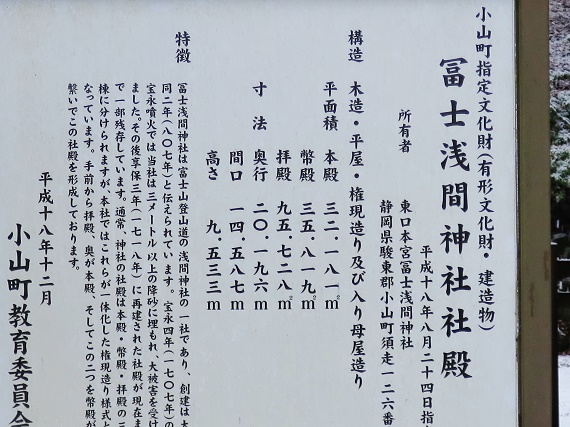 小山町指定文化財(有形文化財・建造物)
冨士浅間神社社殿
平成十八年八月二十四日指
所有者 東口本宮冨士浅間神社
静岡県駿東郡小山町須走一二六番
構造 木造・平屋・権現造り及び入り母屋造り
平面積 本殿 三二・一八一㎡
幣殿 三五・八一九㎡
拝殿 九五・七二八㎡
寸法 奥行 二〇・一九六m
間口 一四・五八七m
高さ 九・五三三m
特徴 冨士浅間神社は富士山登山道の浅間神社の一社であり、創建は大
同二年(八〇七年)と伝えられています。宝永四年(一七〇七年)の
宝永噴火では当社は三メートル以上の降砂に埋もれ、大被害を受け
ました。その後享保三年(一七一八年)に再建された社殿が現在ま
で一部残存しています。通常、神社の社殿は本殿・幣殿・拝殿の三
棟に分けられますが、本社ではこれらが一体化した権現造り様式と
なっています。手前から拝殿、奥が本殿、そしてこの二つを幣殿が
繋いでこの社殿を形成しております。
平成十八年十二月
小山町教育委員会